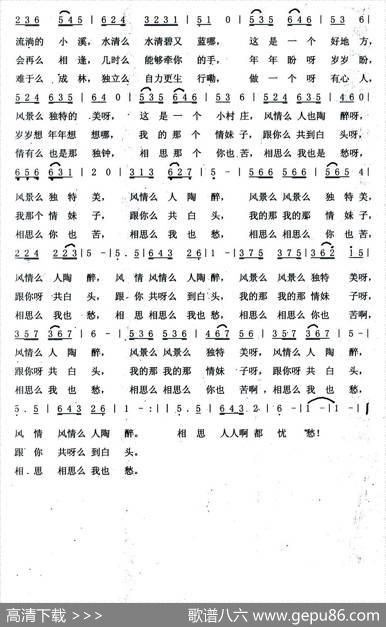 2 3 6 5 4 5 | 6 2 4 | 3 2 3 1 | 5 1 0 | 5 3 5 6 4 6 | 5 1 3 5 |
流淌的 小 溪，水清么 水清碧又 蓝哪， 这 是 一 个 好地 方，
会再么 相 逢，几时么 能够牵你 的手， 年 年 盼 呀 岁岁 盼，
难于么 成 林，独立么 自力更生 行嘞， 做 一 个 呀 有心 人，
5 2 4 6 3 5 | 6 4 0 | 5 3 5 6 4 6 | 5 3 6 | 5 3 5 1 2 3 5 | 4. 6 0 |
风景么 独特的 美呀， 这 是 一 个 小村 庄，风情么 人也陶 醉呀，
岁岁想 年年想 想哪， 我 的 那 个 情妹 子，跟你么 共到白 头呀，
情有么 也是那 独钟， 相 思 那 个 你也 苦，相思么 我也是 愁呀，
风景么 独 特 美， 风情么 人 陶 醉， 风景么 风景么 独特 美，
我那个 情 妹 子， 跟你么 共 白 头， 我的那 我的那 情妹 子，
相思么 你 也 苦， 相思么 我 也 愁， 相思么 相思么 你也 苦，
2 2 4 2 2 3 | 5 - | 5. 5 | 6 4 3 2 6 | 1 - | 3 5 7 3 6 7 | 3 7 5 3 6 2 | 1 5 |
风情么 人陶 醉， 风 情 风情么 人陶 醉， 风景么 风景么 独特 美呀，
跟你呀 共白 头， 跟 你 共呀么 到白 头， 我的那 我的那 情妹 子呀，
相思么 我也 愁， 相 思 相思么 我也 愁， 相思么 相思么 你也 苦啊，
风情么 人 陶 醉， 风景么 风景么 独特 美呀， 风情么 人 陶 醉，
跟你呀 共 白 头， 我的那 我的那 情妹 子呀， 跟你呀 共 白 头，
相思么 我 也 愁， 相思么 相思么 你也 苦啊， 相思么 我 也 愁，
5. 5 | 6 4 3 2 6 | 1 - :| | 5. 5 | 6 4 3 2 | 6 - | 1 - | 1 - ‖
风 情 风情么 人陶 醉。 相 思 人人啊 都 忧 愁！
跟 你 共呀么 到白 头。
相 思 相思么 我也 愁。
高清下载 >>> 歌谱八六 www.gepu86.com